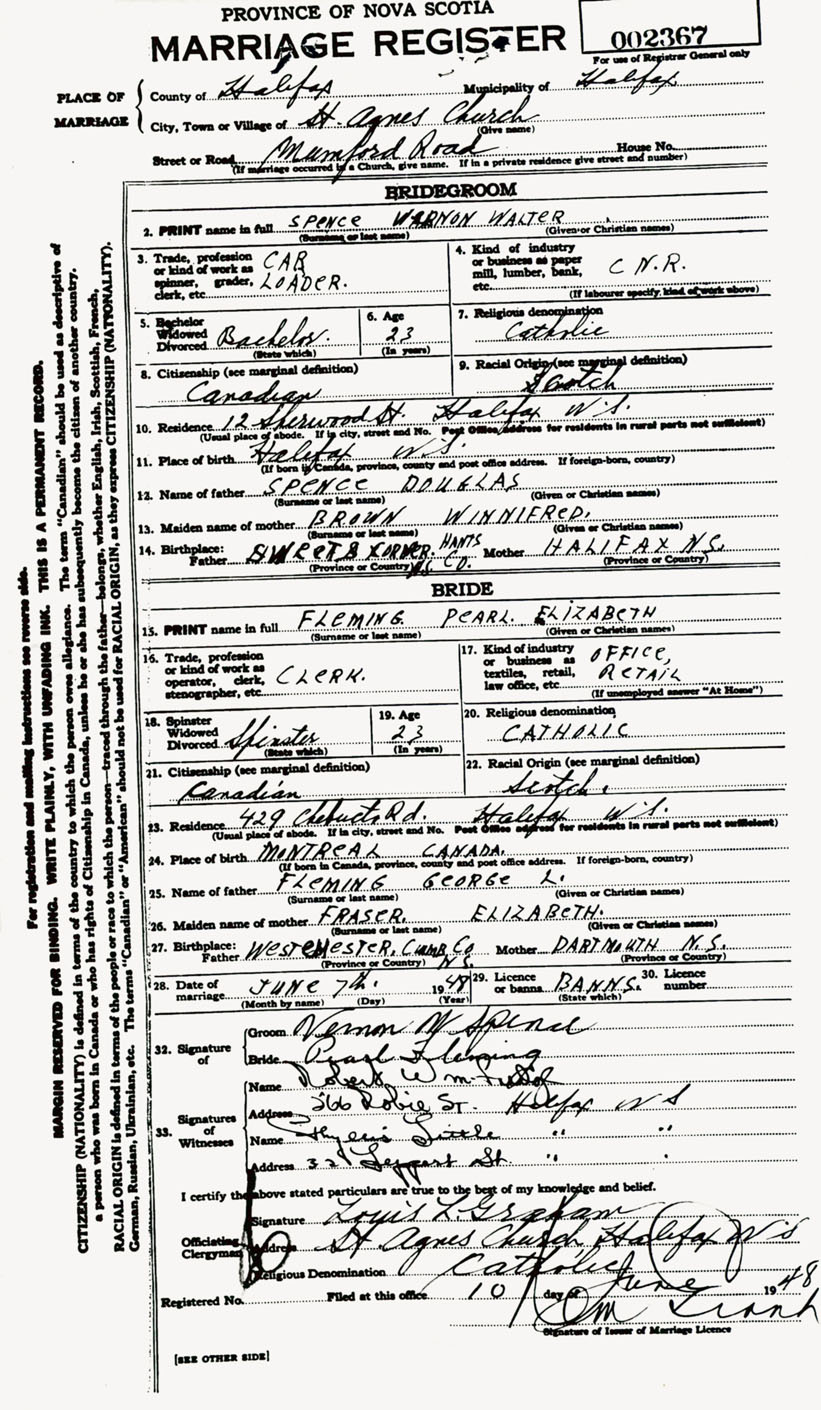 PROVINCE OF NOVA SCOTIA
MARRIAGE REGISTER
002367
For use of Registrar General only
PLACE OF MARRIAGE
County of Halifax Municipality of Halifax
City, Town or Village of St. Agnes Church
(Give name)
Street or Road Mumford Road House No.
(If marriage occurred in a Church, give name. If in a private residence give street and number)
BRIDEGROOM
2. PRINT name in full SPENCE VERNON WALTER
(Surname or last name) (Given or Christian names)
3. Trade, profession or kind of work as spinner, grader, clerk, etc. CAR LOADER.
4. Kind of industry or business as paper mill, lumber, bank, etc. C N.R.
(If labourer specify kind of work above)
5. Bachelor Widowed Divorced Bachelor.
(State which)
6. Age 23
(In years)
7. Religious denomination
Catholic
8. Citizenship (see marginal definition)
Canadian
9. Racial Origin (see marginal definition)
Scotch
10. Residence 12 Sherwood St. Halifax N.S.
(Usual place of abode. If in city, street and No. Post Office address for residents in rural parts not sufficient)
11. Place of birth Halifax N.S.
(If born in Canada, province, county and post office address. If foreign-born, country)
12. Name of father SPENCE DOUGLAS
(Surname or last name) (Given or Christian names)
13. Maiden name of mother BROWN WINNIFRED.
(Surname or last name) (Given or Christian names)
14. Birthplace: Father SWEETS KORNER. HANTS CO. N.S. Mother HALIFAX N.S.
(Province or Country) (Province or Country)
BRIDE
15. PRINT name in full FLEMING. PEARL. ELIZABETH
(Surname or last name) (Given or Christian names)
16. Trade, profession or kind of work as operator, clerk, stenographer, etc. CLERK.
17. Kind of industry or business as textiles, retail, law office, etc. OFFICE, RETAIL
(If unemployed answer "At Home")
18. Spinster Widowed Divorced Spinster
(State which)
19. Age 23
(In years)
20. Religious denomination
CATHOLIC
21. Citizenship (see marginal definition)
Canadian
22. Racial Origin (see marginal definition)
Scotch.
23. Residence 429 Chebucto Rd. Halifax N.S.
(Usual place of abode. If in city, street and No. Post Office address for residents in rural parts not sufficient)
24. Place of birth MONTREAL CANADA.
(If born in Canada, province, county and post office address. If foreign-born, country)
25. Name of father FLEMING GEORGE L.
(Surname or last name) (Given or Christian names)
26. Maiden name of mother FRASER. ELIZABETH.
(Surname or last name) (Given or Christian names)
27. Birthplace: Father WESTCHESTER, CUMB. CO N.S. Mother DARTMOUTH N.S.
(Province or Country) (Province or Country)
28. Date of marriage JUNE 7th. 1948
(Month by name) (Day) (Year)
29. Licence or banns BANNS.
(State which)
30. Licence number
32. Signature of
Groom Vernon W Spence
Bride Pearl Fleming
33. Signatures of Witnesses
Name Robert Wm
Address 366 Robie St. Halifax N S
Name Phyllis Little " "
Address Leppert St. " "
I certify the above stated particulars are true to the best of my knowledge and belief.
Officiating Clergyman
Signature Louis L. Graham
Address St Agnes Church Halifax N S
Religious Denomination Catholic
Registered No. Filed at this office 10 day of June 1948
Signature of Issuer of Marriage Licence
[SEE OTHER SIDE]
For registration and mailing instructions see reverse side.
MARGIN RESERVED FOR BINDING. WRITE PLAINLY, WITH UNFADING INK. THIS IS A PERMANENT RECORD.
CITIZENSHIP (NATIONALITY) is defined in terms of the country to which the person owes allegiance. The term "Canadian" should be used as descriptive of
a person who was born in Canada or who has rights of Citizenship in Canada, unless he or she has subsequently become the citizen of another country.
RACIAL ORIGIN is defined in terms of the people or race to which the person—traced through the father—belongs, whether English, Irish, Scottish, French,
German, Russian, Ukrainian, etc. The terms "Canadian" or "American" should not be used for RACIAL ORIGIN, as they express CITIZENSHIP (NATIONALITY).